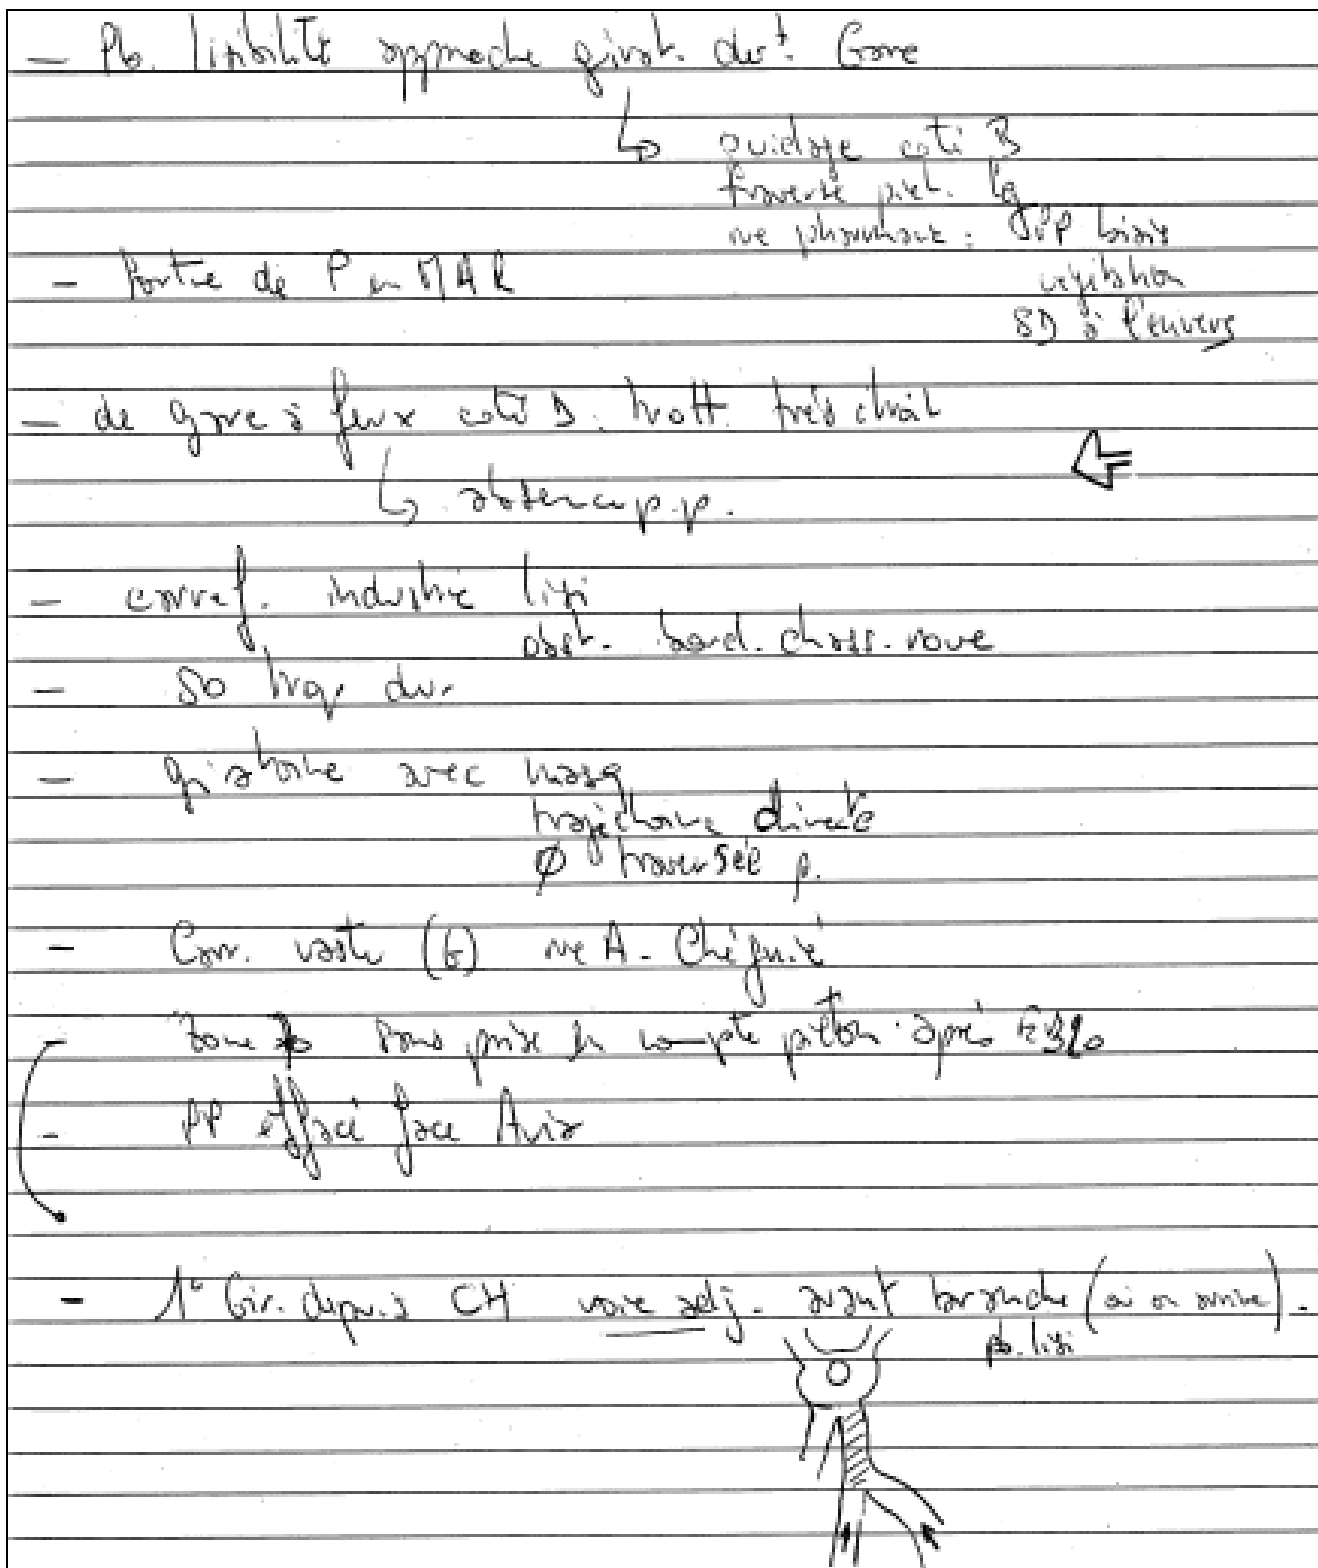 - Pb. lisibilité approche girat. devt Gare
↳ guidage coté B
traversé piet. lg
rue pharmacie : PP biais
végétation
SD à l'envers
- Sortie de P en MAR
- de gare à feux coté D. trott. très étroit
↳ absence p.p.
- carref. industrie lisi
obst. bord. chauss. roue
- 50 trop dur
- giratoire avec masq
trajectoire directe
Ø traversée p.
- Carr. vaste (G) rue A. Chéguiè
- zone sans prise en compte piéton après EB20
- PP effacé face Avia
- 1° Gir. depuis CH voie adj. avant branche (où on arrive).
pb. lisi